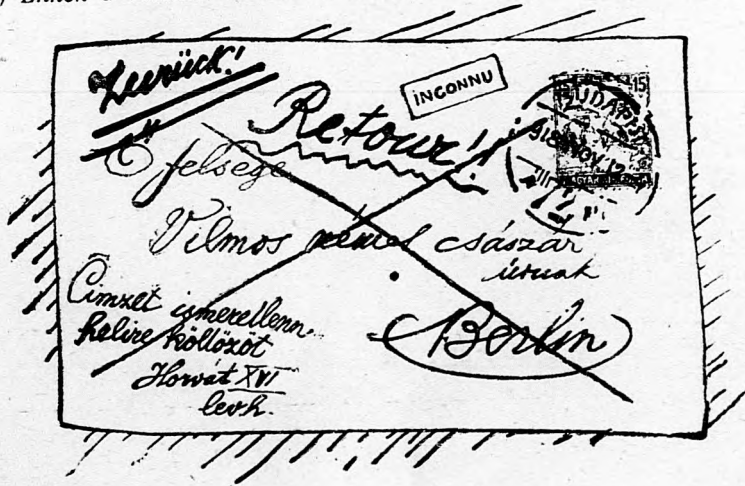 Zurück!
Retour!!
INCONNU
15
BUDAPEST
918 NOV 12
Ő felsége
Vilmos német császár
úrnak
Berlin
Cimzet ismerellenn
helire költözöt
Horvát XVI
levh.